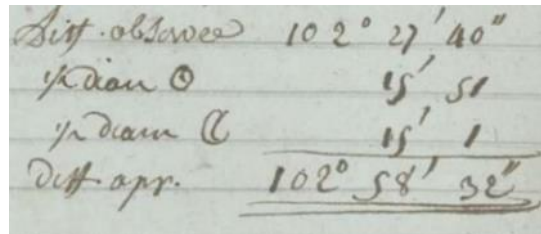 Dist. observee 102° 27' 40"
½ diam ☉ 15' 51
½ diam ☾ 15' 1
Dist app. 102° 58' 32"